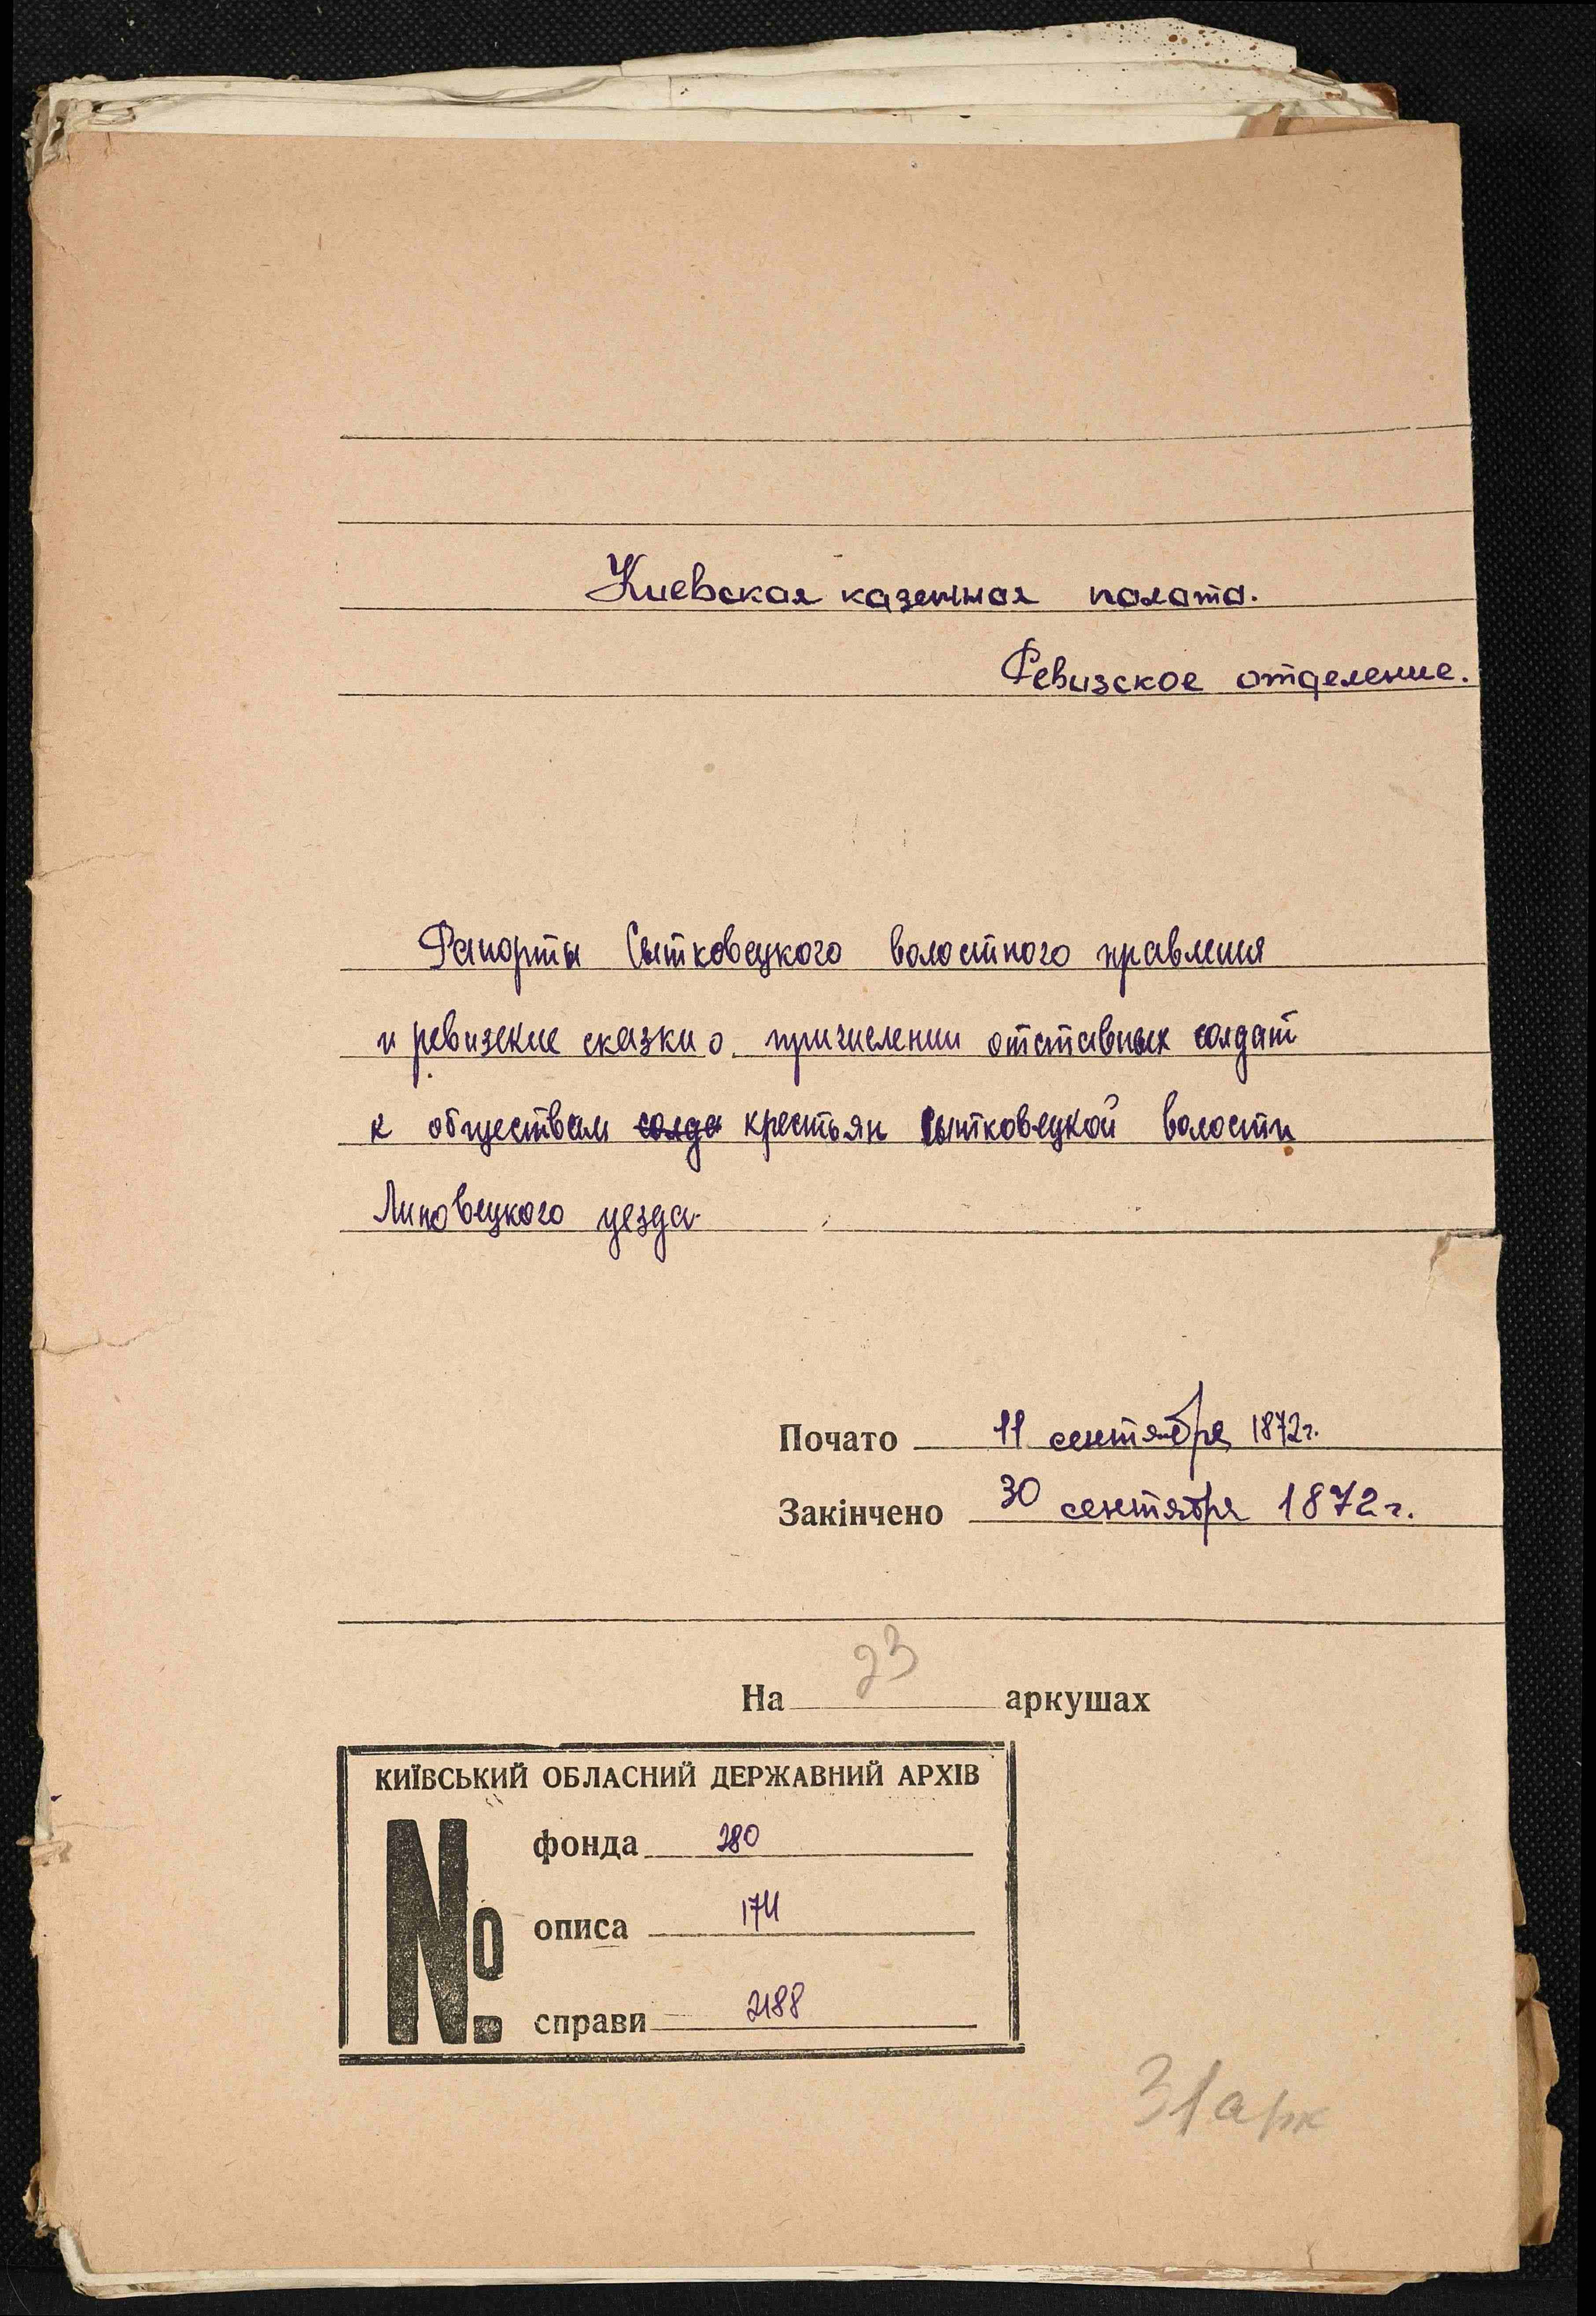 Киевская казенная палата.
Ревизское отделение.
Рапорты Сытковецкого волостного правления
и ревизские сказки о причислении отставных солдат
к обществам солда крестьян Сытковецкой волости
Липовецкого уезда.
Почато 11 сентября 1872г.
Закінчено 30 сентября 1872г.
На 23 аркушах
КИЇВСЬКИЙ ОБЛАСНИЙ ДЕРЖАВНИЙ АРХІВ
№
фонда 280
описа 174
справи 2188
31 арк